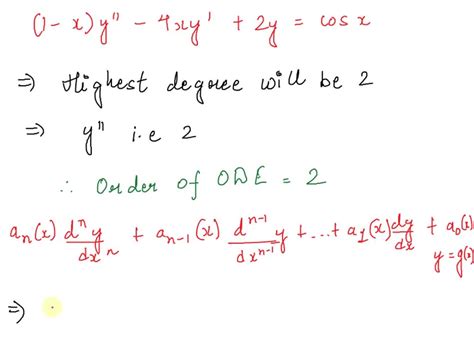 (1-x) y" - 4xy' + 2y = cos x
⇒ Highest degree will be 2
⇒ y" i.e 2
∴ Order of ODE = 2
aₙ(x) dⁿy/dxⁿ + aₙ₋₁(x) dⁿ⁻¹y/dxⁿ⁻¹ + ... + a₁(x) dy/dx + a₀(x)
y = g(x)
⇒